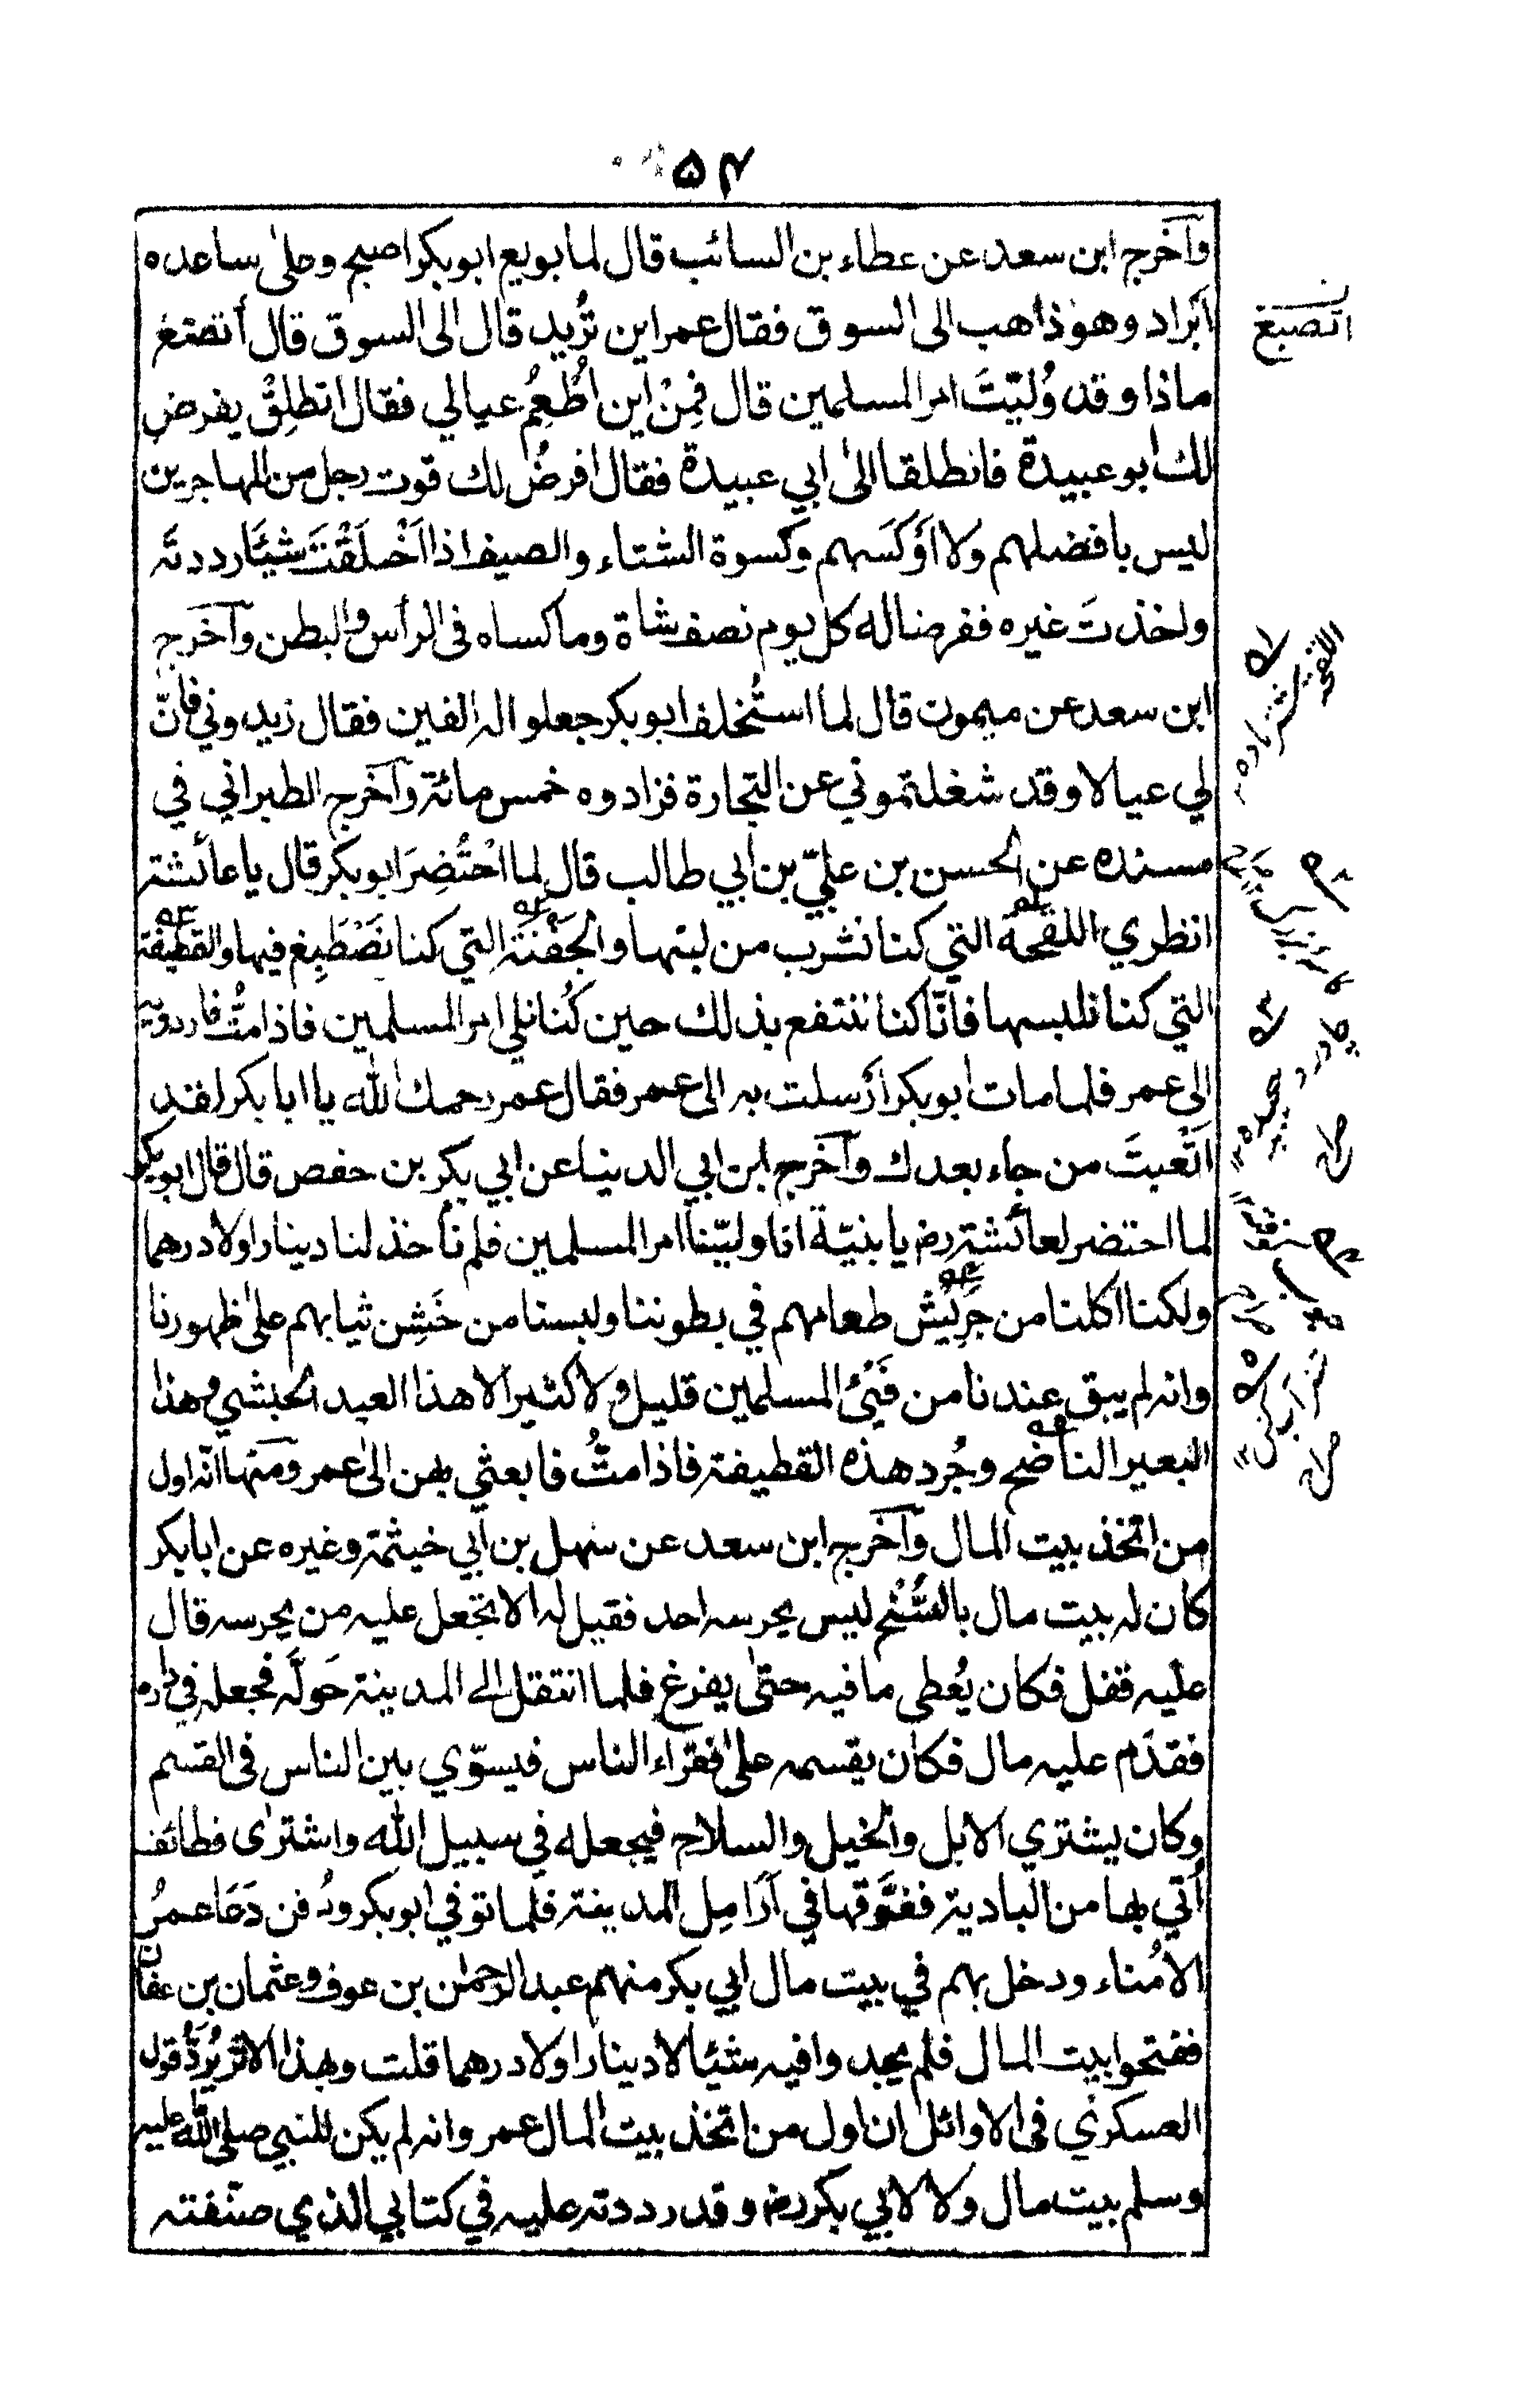 ۵۴
وآخرج ابن سعد عن عطاء بن السائب قال لما بويع ابوبكر اصبح وعلى ساعده
اَبراد وهو ذاهب الى السوق فقال عمر اين تُريد قال الى السوق قال أتصنع
ماذا وقد وُلّيتَ امر المسلمين قال فمِنْ اين اُطْعِمُ عيالي فقال انطلِقْ يفرض
لك ابو عبيدة فانطلقا الىٰ ابي عبيدة فقال افرضُ لك قوت رجل من المهاجرين
ليس بافضلهم ولا اَوْكَسَهم وكسوة الشتاء والصيف اذا اَخْلَقْتَ شيئًا رددته
واخذتَ غيره ففرضا له كل يوم نصف شاة وما كساه فى الرأس والبطن وآخرج
ابن سعد عن ميمون قال لما استُخلف ابوبكر جعلوا له الفين فقال زيدوني فانّ
لي عيالا وقد شغلتموني عن التجارة فزادوه خمس مائة وآخرج الطبراني في
مسنده عن الحسن بن عليّ بن ابي طالب قال لما احْتُضِرَ ابوبكر قال يا عائشة
انظري اللقحة التي كنا نشرب من لبنها والجَفْنَة التي كنا نَصْطَبِغ فيها والقطيفة
التي كنا نلبسها فانّا كنا ننتفع بذلك حين كُنا نلي امر المسلمين فاذا متُّ فارديه
الى عمر فلما مات ابوبكر اَرْسلت به الى عمر فقال عمر رحمك الله يا ابا بكر لقد
اَتْعبتَ من جاء بعدك وآخرج ابن ابي الدنيا عن ابي بكر بن حفص قال قال ابوبكر
لما احتضر لعائشة رض يا بنيّة انا ولّينا امر المسلمين فلم نأخذ لنا دينارا ولا درهما
ولكنا اكلنا من جَرِيْش طعامهم في بطوننا ولبسنا من خَشِن ثيابهم على ظهورنا
وانه لم يبق عندنا من فَيْئ المسلمين قليل ولا كثير الا هذا العبد الحبشي وهذا
البعير الناضح وجُرد هذه القطيفة فاذا متُّ فابعثي بهن الىٰ عمر ومنها انّه اول
من اتخذ بيت المال وآخرج ابن سعد عن سهل بن ابي خيثمة وغيره عن ابابكر
كان له بيت مال بالسُّنْح ليس يحرسه احد فقيل له الا تجعل عليه من يحرسه قال
عليه قفل فكان يُعطي ما فيه حتىٰ يفرغ فلما انتقل الى المدينة حَولَّه فجعله في داره
فقدم عليه مال فكان يقسمه على فقراء الناس فيسوّي بين الناس فى القسم
وكان يشتري الابل والخيل والسلاح فيجعله في سبيل الله واشترى قطائف
اُتي بها من البادية ففرّقها في اَرَامِل المدينة فلما توفي ابوبكر ودُفن دَعَا عمرُ
الاُمناء ودخل بهم في بيت مال ابي بكر منهم عبد الرحمن بن عوف وعثمان بن عفان
ففتحوا بيت المال فلم يجدوا فيه شيئا لا دينارا ولا درهما قلت وبهذا الاثر يُرَدُّ قول
العسكري فى الاوائل ان اول من اتخذ بيت المال عمر وانه لم يكن للنبي صلى الله عليه
وسلم بيت مال ولا لابي بكر رض وقد رددته عليه في كتابي الذي صنفته
ن
اتصبغ